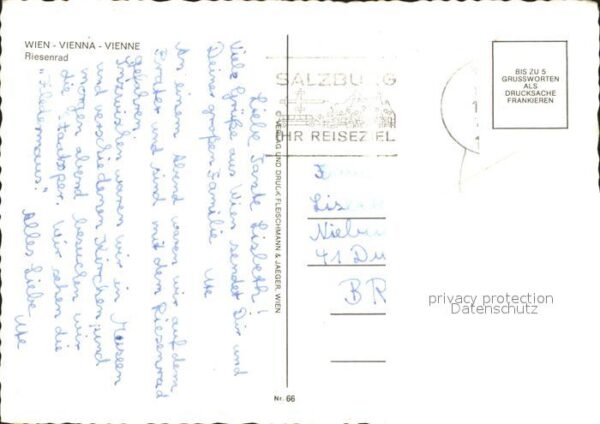 WIEN - VIENNA - VIENNE
Riesenrad
Liebe Tante Lisbeth!
Viele Grüße aus Wien sendet Dir und
Deiner großen Familie Ute
An einem Abend waren wir auf dem
Prater und sind mit dem Riesenrad
gefahren.
Inzwischen waren wir in Museen
und verschiedenen Kirchen, und
morgen abend besuchen wir
die Staatsoper. Wir sehen die
"Fledermaus".
Alles Liebe
Ute
VERLAG UND DRUCK FLEISCHMANN & JAEGER, WIEN
Nr. 66
SALZBURG
IHR REISEZIEL
BIS ZU 5
GRUSSWORTEN
ALS
DRUCKSACHE
FRANKIEREN
Niebu
41 Du
BR
privacy protection
Datenschutz